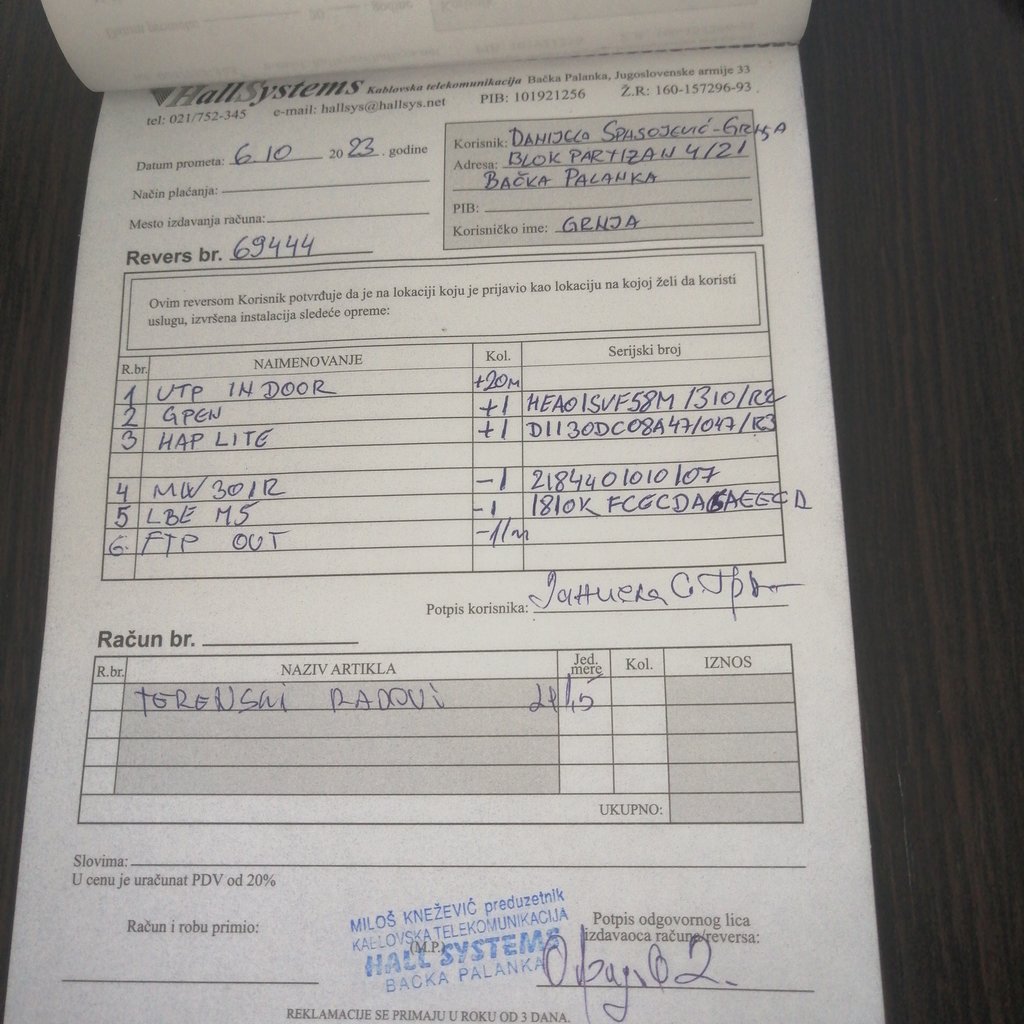 HallSystems Kablovska telekomunikacija Bačka Palanka, Jugoslovenske armije 33
tel: 021/752-345 e-mail: hallsys@hallsys.net PIB: 101921256 Ž.R: 160-157296-93
Datum prometa: 6.10 2023. godine
Način plaćanja:
Mesto izdavanja računa:
Revers br. 69444
Korisnik: DANIJELA SPASOJEVIĆ-GRNJA
Adresa: BLOK PARTIZAN 4/21
BAČKA PALANKA
PIB:
Korisničko ime: GRNJA
Ovim reversom Korisnik potvrđuje da je na lokaciji koju je prijavio kao lokaciju na kojoj želi da koristi
uslugu, izvršena instalacija sledeće opreme:
R.br. NAIMENOVANJE Kol. Serijski broj
1 UTP INDOOR +20m
2 GPEN +1 HEA01SVF58M/310/R2
3 HAP LITE +1 D1130DC08A47/047/R3
4 MW301R -1 2184401010107
5 LBE M5 -1 1810K
6. FTP OUT
Potpis korisnika:
Račun br.
R.br. NAZIV ARTIKLA Jed. mere Kol. IZNOS
TERENSKI RADOVI
UKUPNO:
Slovima:
U cenu je uračunat PDV od 20%
Račun i robu primio:
MILOŠ KNEŽEVIĆ preduzetnik
KABLOVSKA TELEKOMUNIKACIJA
(M.P.)
HALL SYSTEMS
BAČKA PALANKA
Potpis odgovornog lica
izdavaoca računa/reversa:
REKLAMACIJE SE PRIMAJU U ROKU OD 3 DANA.